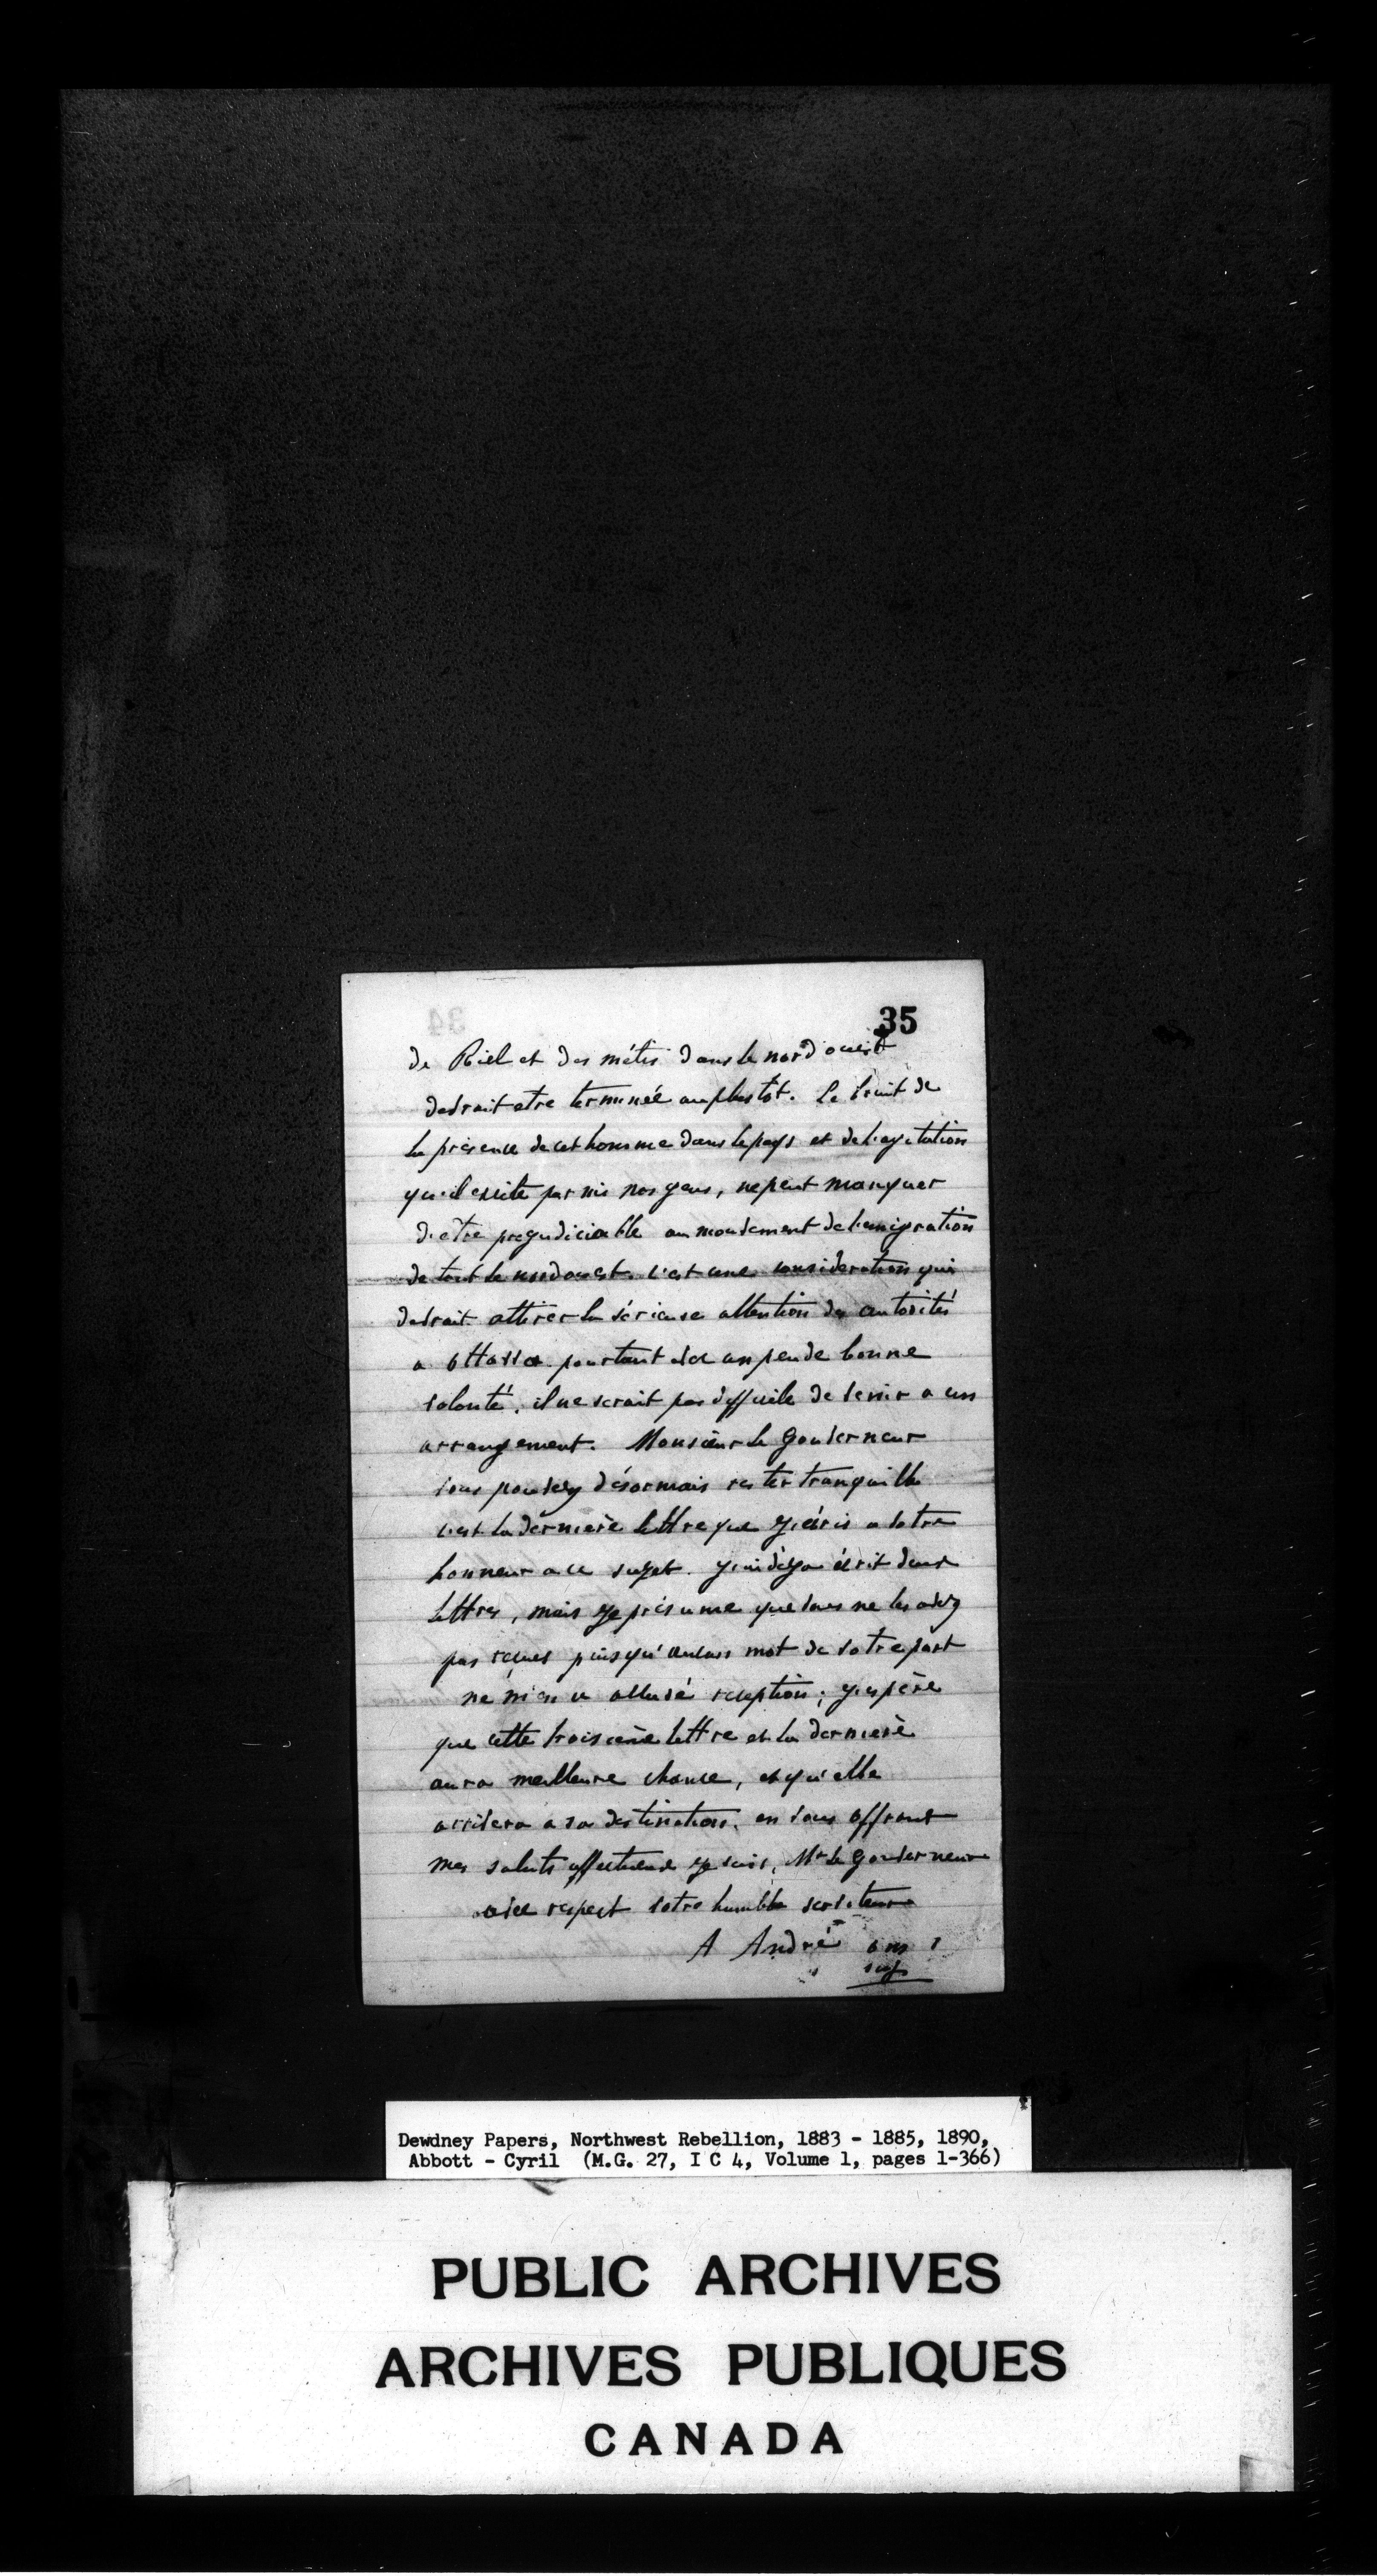 35
de Riel et des métis dans le nord ouest
devrait etre terminée au plus tôt. Le bruit de
la présence de cet homme dans le pays et de l'agitation
qu'il excite parmis nos gens, ne peut manquer
d'etre prejudiciable au mouvement de l'emigration
de tout le nord ouest. c'est une consideration qui
devrait attirer la sérieuse attention des autorités
a Ottawa pourtant avec un peu de bonne
volonté, il ne serait pas difficile de venir a un
arrangement. Monsieur le Gouverneur
vous pouvez désormais rester tranquille
c'est la dernière lettre que j'écris a votre
honneur a ce sujet. j'ai déja écrit deux
lettres, mais je présume que vous ne les avez
pas reçues puisqu'aucun mot de votre part
ne m'en a accusé reception; j'espère
que cette troisième lettre et la dernière
aura meilleure chance, et qu'elle
arrivera a sa destination. en vous offrant
mes saluts affectueux je suis, Mr le Gouverneur
avec respect votre humble serviteur
A André o m i
sup
Dewdney Papers, Northwest Rebellion, 1883 - 1885, 1890,
Abbott - Cyril (M.G. 27, I C 4, Volume 1, pages 1-366)
PUBLIC ARCHIVES
ARCHIVES PUBLIQUES
CANADA